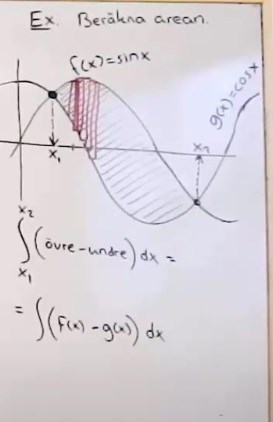 Ex. Beräkna arean.
f(x)=sinx
g(x)=cosx
x₁
x₂
x₂
∫(övre-undre) dx =
x₁
= ∫(f(x) - g(x)) dx